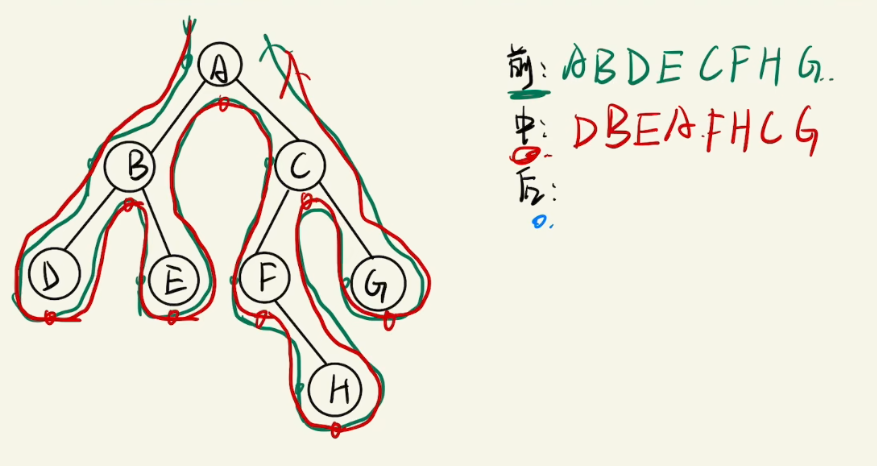 A
B
C
D
E
F
G
H
前: ABDECFHG..
中: DBEA.FHCG
后: